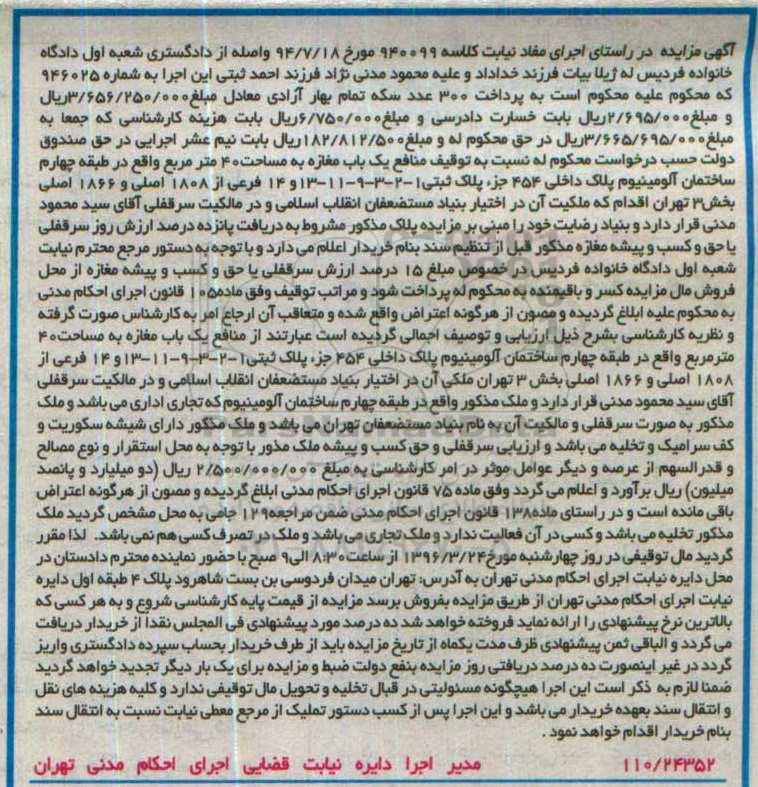 آگهی مزایده در راستای اجرای مفاد نیابت کلاسه ۹۴۰۰۹۹ مورخ ۹۴/۷/۱۸ واصله از دادگستری شعبه اول دادگاه
خانواده فردیس له ژیلا بیات فرزند خداداد و علیه محمود مدنی نژاد فرزند احمد ثبتی این اجرا به شماره ۹۴۶۰۲۵
که محکوم علیه محکوم است به پرداخت ۳۰۰ عدد سکه تمام بهار آزادی معادل مبلغ۳/۶۵۶/۲۵۰/۰۰۰ریال
و مبلغ۲/۶۹۵/۰۰۰ریال بابت خسارت دادرسی و مبلغ۶/۷۵۰/۰۰۰ریال بابت هزینه کارشناسی که جمعا به
مبلغ۳/۶۶۵/۶۹۵/۰۰۰ریال در حق محکوم له و مبلغ۱۸۲/۸۱۲/۵۰۰ریال بابت نیم عشر اجرایی در حق صندوق
دولت حسب درخواست محکوم له نسبت به توقیف منافع یک باب مغازه به مساحت۴۰ متر مربع واقع در طبقه چهارم
ساختمان آلومینیوم پلاک داخلی ۴۵۴ جزء پلاک ثبتی۱-۲-۳-۹-۱۱-۱۳و ۱۴ فرعی از ۱۸۰۸ اصلی و ۱۸۶۶ اصلی
بخش۳ تهران اقدام که ملکیت آن در اختیار بنیاد مستضعفان انقلاب اسلامی و در مالکیت سرقفلی آقای سید محمود
مدنی قرار دارد و بنیاد رضایت خود را مبنی بر مزایده پلاک مذکور مشروط به دریافت پانزده درصد ارزش روز سرقفلی
یا حق و کسب و پیشه مغازه مذکور قبل از تنظیم سند بنام خریدار اعلام می دارد و با توجه به دستور مرجع محترم نیابت
شعبه اول دادگاه خانواده فردیس در خصوص مبلغ ۱۵ درصد ارزش سرقفلی یا حق و کسب و پیشه مغازه از محل
فروش مال مزایده کسر و باقیمانده به محکوم له پرداخت شود و مراتب توقیف وفق ماده۱۰۵ قانون اجرای احکام مدنی
به محکوم علیه ابلاغ گردیده و مصون از هرگونه اعتراض واقع شده و متعاقب آن ارجاع امر به کارشناس صورت گرفته
و نظریه کارشناسی بشرح ذیل ارزیابی و توصیف اجمالی گردیده است عبارتند از منافع یک باب مغازه به مساحت۴۰
مترمربع واقع در طبقه چهارم ساختمان آلومینیوم پلاک داخلی ۴۵۴ جزء پلاک ثبتی۱-۲-۳-۹-۱۱-۱۳و ۱۴ فرعی از
۱۸۰۸ اصلی و ۱۸۶۶ اصلی بخش ۳ تهران ملکی آن در اختیار بنیاد مستضعفان انقلاب اسلامی و در مالکیت سرقفلی
آقای سید محمود مدنی قرار دارد و ملک مذکور واقع در طبقه چهارم ساختمان آلومینیوم که تجاری اداری می باشد و ملک
مذکور به صورت سرقفلی و مالکیت آن به نام بنیاد مستضعفان تهران می باشد و ملک مذکور دارای شیشه سکوریت و
کف سرامیک و تخلیه می باشد و ارزیابی سرقفلی و حق کسب و پیشه ملک مذور با توجه به محل استقرار و نوع مصالح
و قدرالسهم از عرصه و دیگر عوامل موثر در امر کارشناسی به مبلغ ۲/۵۰۰/۰۰۰/۰۰۰ ریال (دو میلیارد و پانصد
میلیون) ریال برآورد و اعلام می گردد وفق ماده ۷۵ قانون اجرای احکام مدنی ابلاغ گردیده و مصون از هرگونه اعتراض
باقی مانده است و در راستای ماده۱۳۸ قانون اجرای احکام مدنی ضمن مراجعه۱۲۹ جامی به محل مشخص گردید ملک
مذکور تخلیه می باشد و کسی در آن فعالیت ندارد و ملک تجاری می باشد و ملک در تصرف کسی هم نمی باشد. لذا مقرر
گردید مال توقیفی در روز چهارشنبه مورخ۱۳۹۶/۳/۲۴ از ساعت۸:۳۰ الی۹ صبح با حضور نماینده محترم دادستان در
محل دایره نیابت اجرای احکام مدنی تهران به آدرس: تهران میدان فردوسی بن بست شاهرود پلاک ۴ طبقه اول دایره
نیابت اجرای احکام مدنی تهران از طریق مزایده بفروش برسد مزایده از قیمت پایه کارشناسی شروع و به هر کسی که
بالاترین نرخ پیشنهادی را ارائه نماید فروخته خواهد شد ده درصد مورد پیشنهادی فی المجلس نقدا از خریدار دریافت
می گردد و الباقی ثمن پیشنهادی ظرف مدت یکماه از تاریخ مزایده باید از طرف خریدار بحساب سپرده دادگستری واریز
گردد در غیر اینصورت ده درصد دریافتی روز مزایده بنفع دولت ضبط و مزایده برای یک بار دیگر تجدید خواهد گردید
ضمنا لازم به ذکر است این اجرا هیچگونه مسئولیتی در قبال تخلیه و تحویل مال توقیفی ندارد و کلیه هزینه های نقل
و انتقال سند بعهده خریدار می باشد و این اجرا پس از کسب دستور تملیک از مرجع معطی نیابت نسبت به انتقال سند
بنام خریدار اقدام خواهد نمود .
۱۱۰/۲۴۳۵۲ مدیر اجرا دایره نیابت قضایی اجرای احکام مدنی تهران